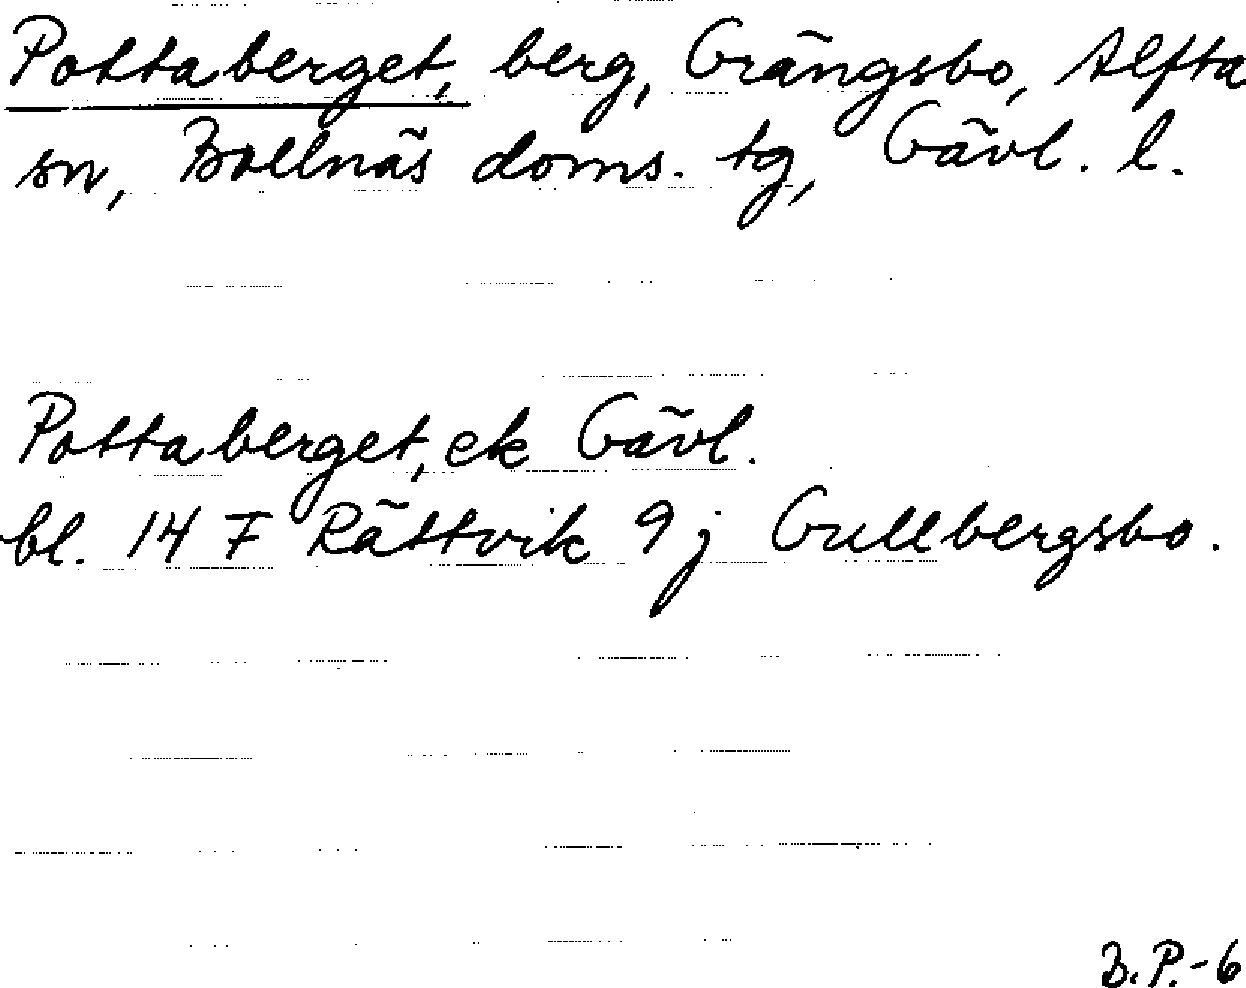 Pottaberget, berg, Grängsbo, Alfta
sn, Bollnäs doms. tg, Gävl. l.
Pottaberget, ek Gävl.
bl. 14 F Rättvik 9 j Gullbergsbo.
B.P.-6